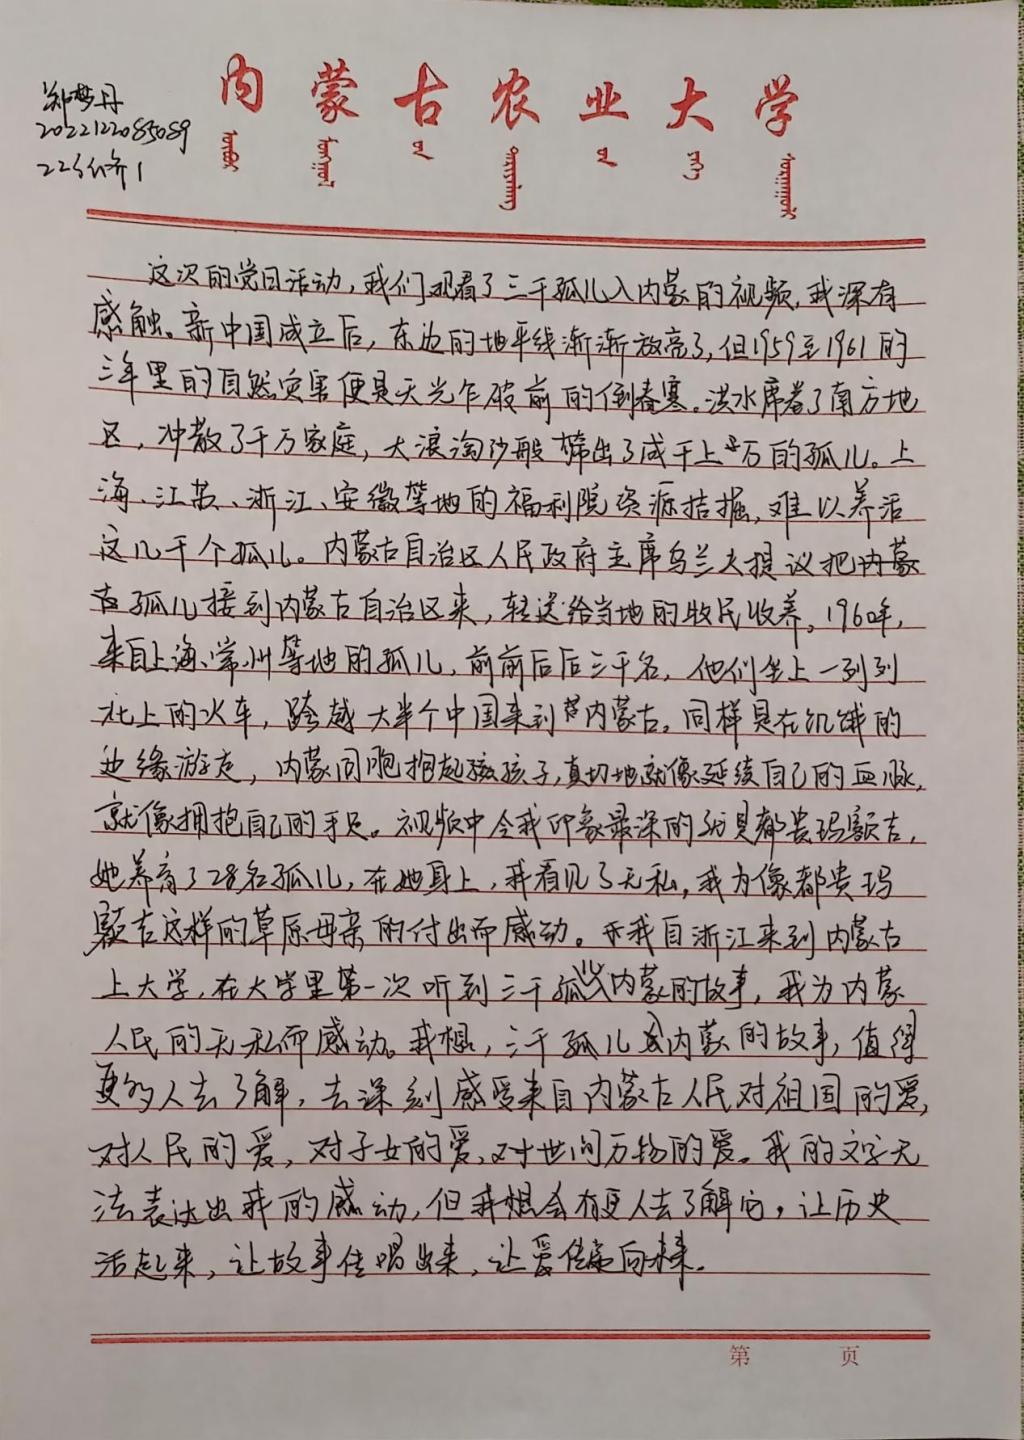 内蒙古农业大学
郑梦丹
2022122085089
这次的党日活动,我们观看了三千孤儿入内蒙的视频,我深有
感触。新中国成立后,东边的地平线渐渐放亮了,但1959至1961的
三年里的自然灾害便是天光乍破前的倒春寒。洪水席卷了南方地
区,冲散了千万家庭,大浪淘沙般筛出了成千上万的孤儿。上
海、江苏、浙江、安徽等地的福利院资源拮掘,难以养活
这几千个孤儿。内蒙古自治区人民政府主席乌兰夫提议把
孤儿接到内蒙古自治区来,转送给当地的牧民收养。1960年,
来自上海、常州等地的孤儿,前前后后三千名,他们坐上一列列
北上的火车,跨越大半个中国来到内蒙古。同样是在饥饿的
边缘游走,内蒙同胞抱起孩子,真切地就像延续自己的血脉,
就像拥抱自己的手足。视频中令我印象最深的的是都贵玛额吉,
她养育了28名孤儿,在她身上,我看见了无私,我为像都贵玛
额吉这样的草原母亲的付出而感动。我自浙江来到内蒙古
上大学,在大学里第一次听到三千孤儿入内蒙的故事,我为内蒙
人民的无私而感动。我想,三千孤儿入内蒙的故事,值得
更多人去了解,去深刻感受来自内蒙古人民对祖国的爱,
对人民的爱,对子女的爱,对世间万物的爱。我的文字无
法表达出我的感动,但我想会有更人去了解它,让历史
活起来,让故事传唱出来,让爱传递向未来。
第 页